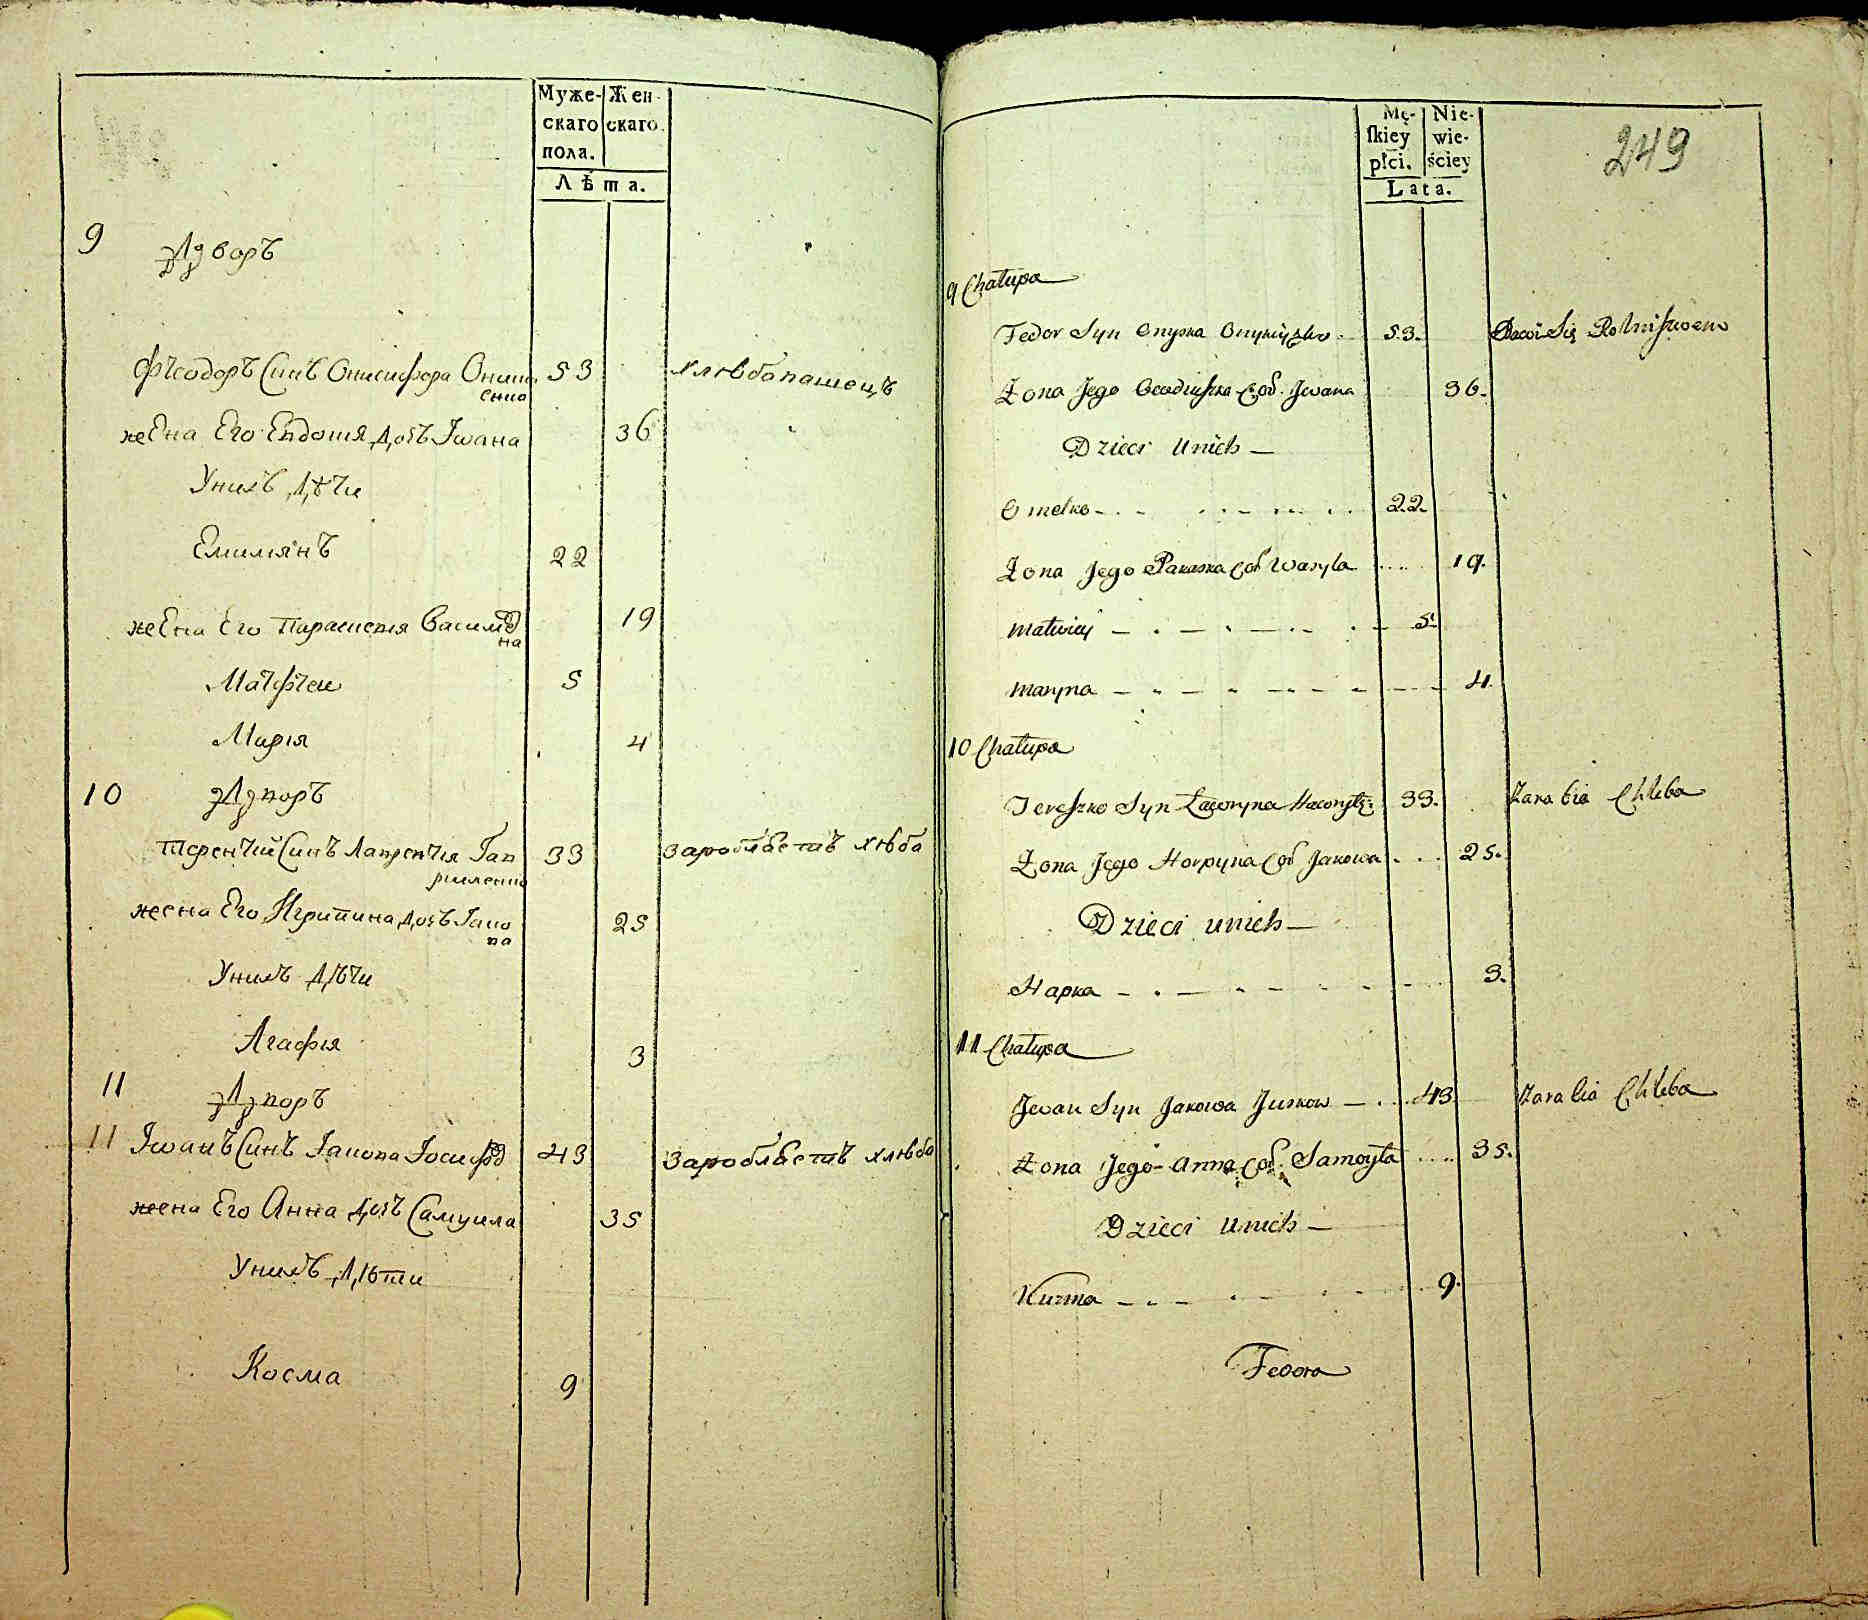 Муже- Жен-
скаго скаго.
пола.
Лѣта.
9 Дворъ
Ѳеодоръ Синъ Онисифора Онищенко 53 хлѣбопашецъ
жена Его Евдокия дочъ Iвана 36
Унихъ дѣти
Емилиянъ 22
жена Его Параскевия Василева 19
Матфѣи 5
Мария 4
10 Дворъ
Терентий Синъ Лаврентия 33 Заробляетъ хлѣба
жена Его Агрипина дочъ Iакова 25
Унихъ дѣти
Агафия 3
11 Дворъ
11 Iванъ Синъ Iакова 43 Заробляетъ хлѣба
жена Его Анна дочъ Самуила 35
Унихъ дѣти
Косма 9
Mę- Nie-
ſkiey wie-
płci. ściey
Lata.
249
9 Chałupa
Fedor Syn Onyska 53. Bawi Się Rolnictwem
Żona Jego Cor. Jwana 36.
Dzieci Unich
Omelko 22.
Żona Jego Paraska Cor Wasyla 19.
Matwiey 5.
Maryna 4.
10 Chałupa
Tereszko Syn Ławryna 33. Zarabia Chleba
Żona Jego Horpyna Cor Jakowa 25.
Dzieci unich
Hapka 3.
11 Chałupa
Jwan Syn Jakowa Juskow 43 Zarabia Chleba
Żona Jego Anna Cor. Samoyła 35.
Dzieci Unich
Kuzma 9.
Fedora